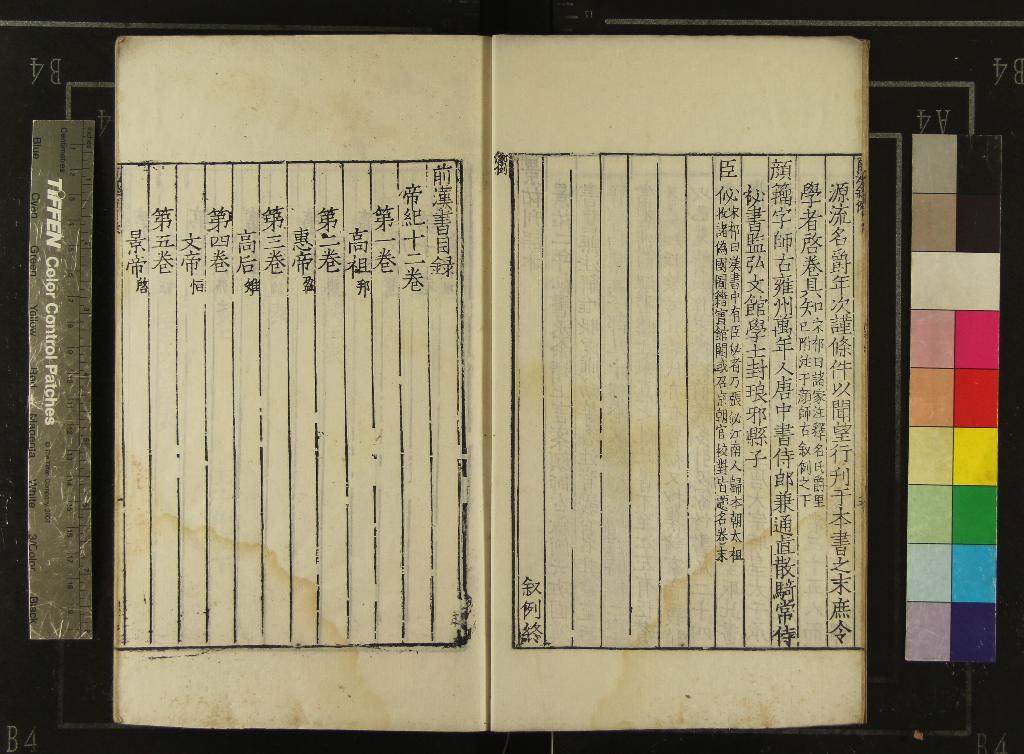 源流名爵年次謹條件以聞望行刊于本書之末庶令
學者啓卷具知
宋祁曰諸家注釋名氏爵里
已附注于顏師古敘例之下
顏籀字師古雍州萬年人唐中書侍郎兼通直散騎常侍
祕書監弘文館學士封琅邪縣子
臣佖
宋祁曰漢書中有臣佖者乃張佖江南人歸本朝太祖
收諸偽國圖籍實館閣或召京朝官校對皆題名卷末
敘例終
前漢書目録
帝紀十二卷
第一卷
高祖邦
第二卷
惠帝盈
第三卷
高后雉
第四卷
文帝恒
第五卷
景帝啓
TIFFEN Color Control Patches
Centimetres
Inches
Blue
Cyan
Green
Yellow
Red
Magenta
White
3/Color
Black
B4
B4
A4
B4
B4